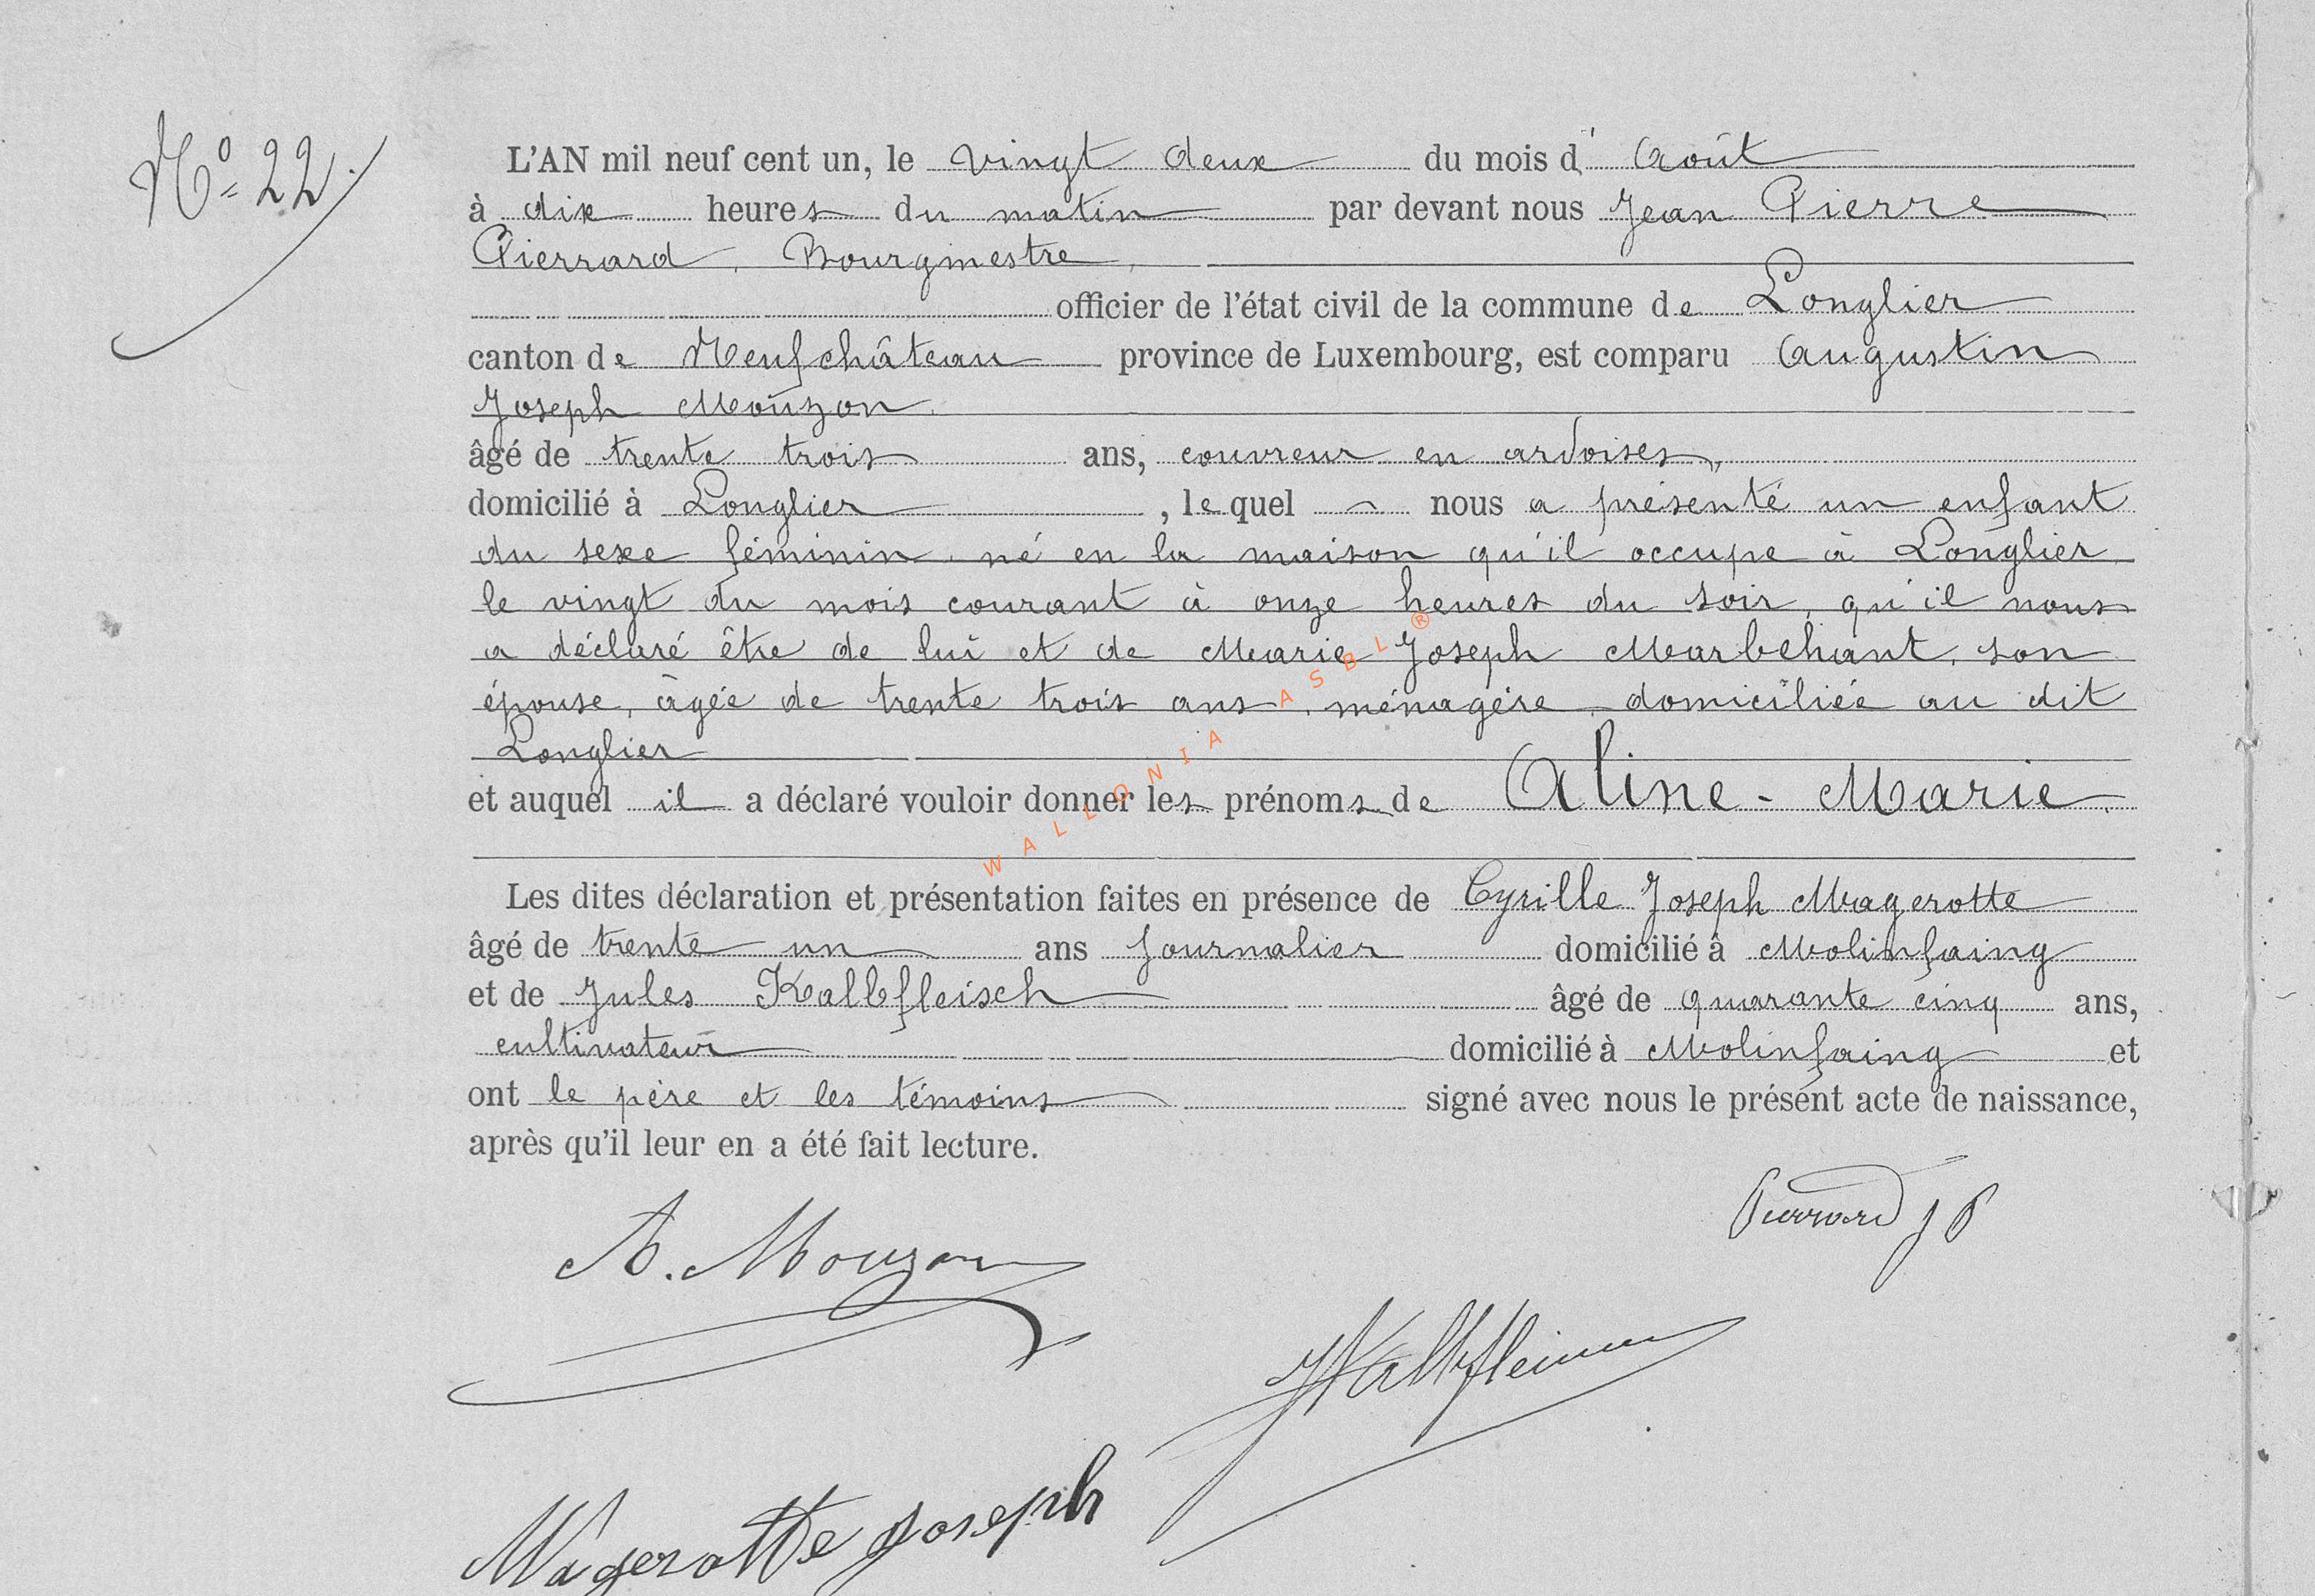 Nº 22.
L'AN mil neuf cent un, le vingt deux du mois d' Août
à dix heures du matin par devant nous Jean Pierre
Pierrard, Bourgmestre,
officier de l'état civil de la commune de Longlier
canton de Neufchâteau province de Luxembourg, est comparu Augustin
Joseph Mouzon
âgé de trente trois ans, couvreur en ardoises,
domicilié à Longlier, lequel nous a présenté un enfant
du sexe féminin, né en la maison qu'il occupe à Longlier
le vingt du mois courant à onze heures du soir, qu'il nous
a déclaré être de lui et de Marie Joseph Marbehant, son
épouse, âgée de trente trois ans, ménagère domiciliée au dit
Longlier
et auquel il a déclaré vouloir donner les prénoms de Aline - Marie.
WALLONIA ASBL ®
Les dites déclaration et présentation faites en présence de Cyrille Joseph Magerotte
âgé de trente un ans journalier domicilié à Molinfaing
et de Jules Kalbfleisch âgé de quarante cinq ans,
cultivateur domicilié à Molinfaing et
ont le père et les témoins signé avec nous le présent acte de naissance,
après qu'il leur en a été fait lecture.
Pierrard JP
A. Mouzon
JKalbfleisch
Magerotte Joseph